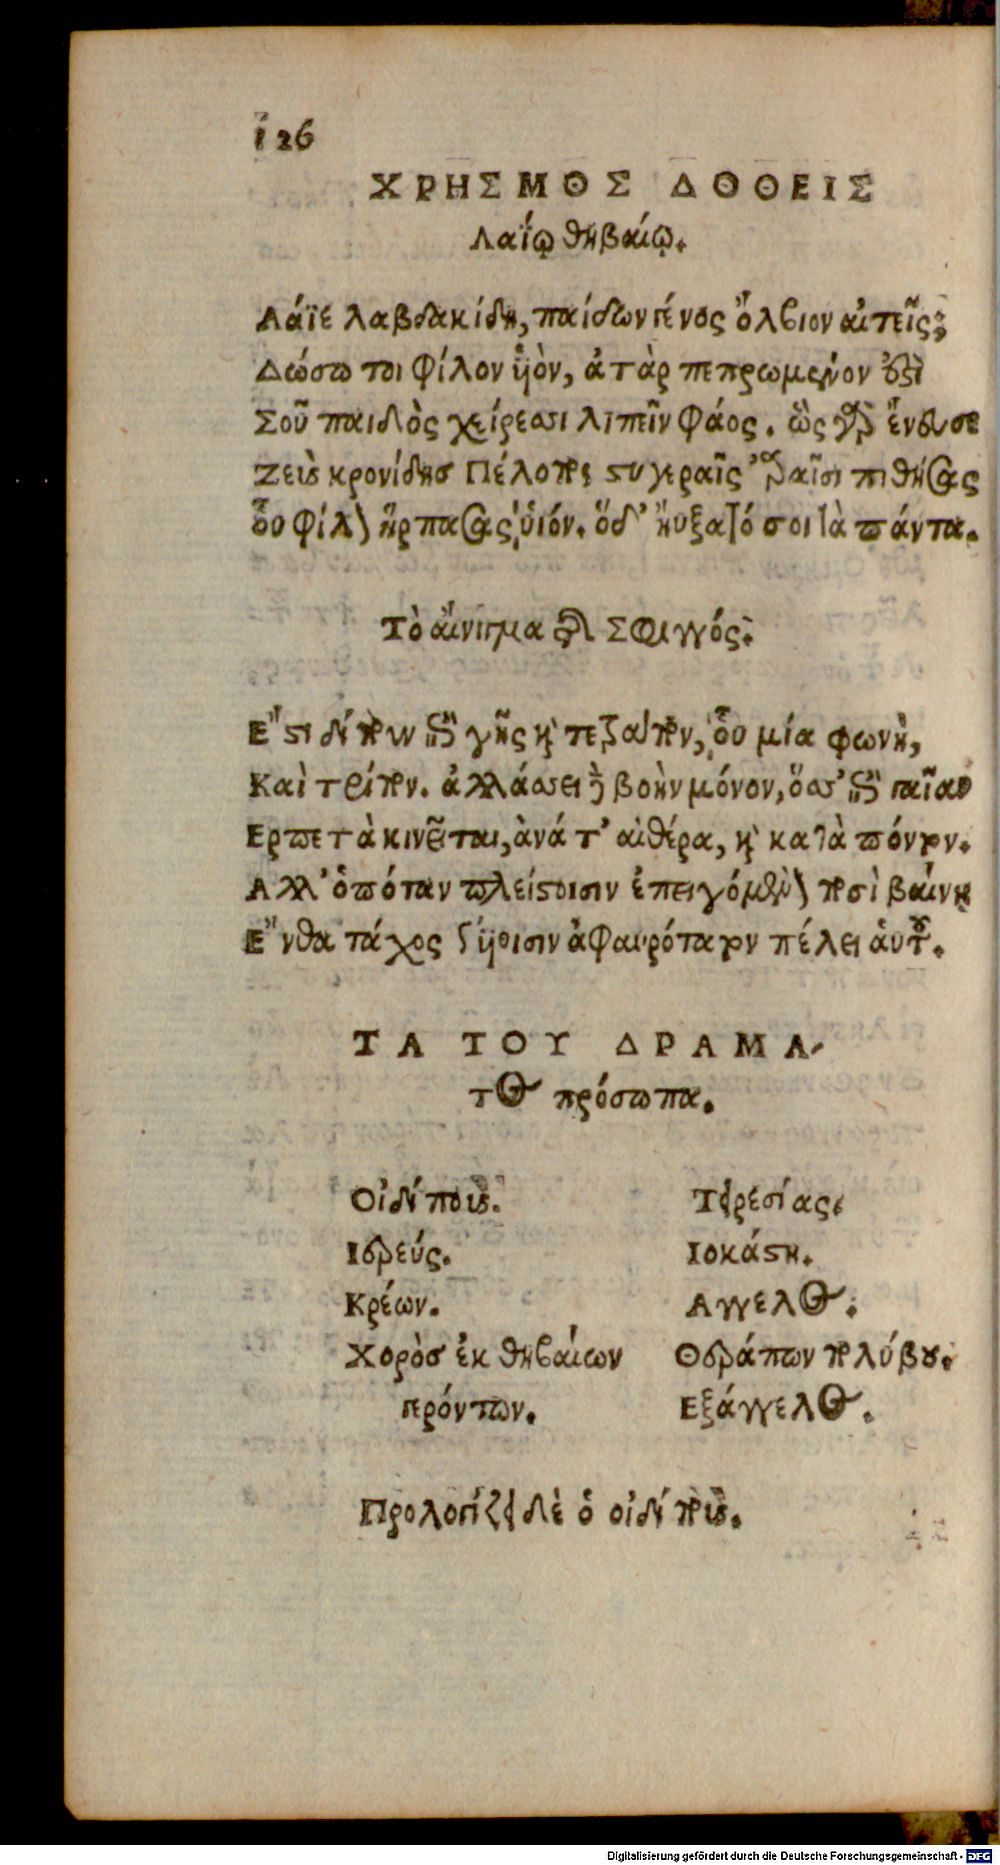 126
ΧΡΗΣΜΟΣ ΔΟΘΕΙΣ
Λαΐῳ θηβαίῳ.
Λάϊε λαβδακίδη, παίδων γένος ὄλβιον αἰτεῖς;
Δώσω τοι φίλον ὑὸν, ἀτὰρ πεπρωμένον ἐστὶ
Σοῦ παιδὸς χείρεσσι λιπεῖν φάος. ὣς γὰρ ἔνευσε
Ζεὺς κρονίδης Πέλοπος στυγεραῖς ἀραῖσι πιθήσας
οὗ φίλον ἥρπασας υἱόν. ὅδ’ ηὔξατό σοι τὰ πάντα.
Τὸ αἴνιγμα τῆς Σφιγγός.
Ε῎στι δίπουν ἐπὶ γῆς καὶ τετράπουν, οὗ μία φωνὴ,
Καὶ τρίπουν. ἀλλάσσει δὲ βοὴν μόνον, ὅσσ’ ἐπὶ γαῖαν
Ερπετὰ κινεῖται, ἀνά τ’ αἰθέρα, καὶ κατὰ πόντον.
Αλλ’ ὁπόταν πλείστοισιν ἐπειγόμενον ποσὶ βαίνῃ
Ε῎νθα τάχος γυίοισιν ἀφαυρότατον πέλει αὐτοῦ.
ΤΑ ΤΟΥ ΔΡΑΜΑ-
τος πρόσωπα.
Οἰδίπους. Τειρεσίας.
Ιερεύς. Ιοκάστη.
Κρέων. Αγγελος.
Χορὸς ἐκ θηβαίων Θεράπων τοῦ λύβου.
γερόντων. Εξάγγελος.
Προλογίζει δὲ ὁ οἰδίπους.
Digitalisierung gefördert durch die Deutsche Forschungsgemeinschaft - DFG